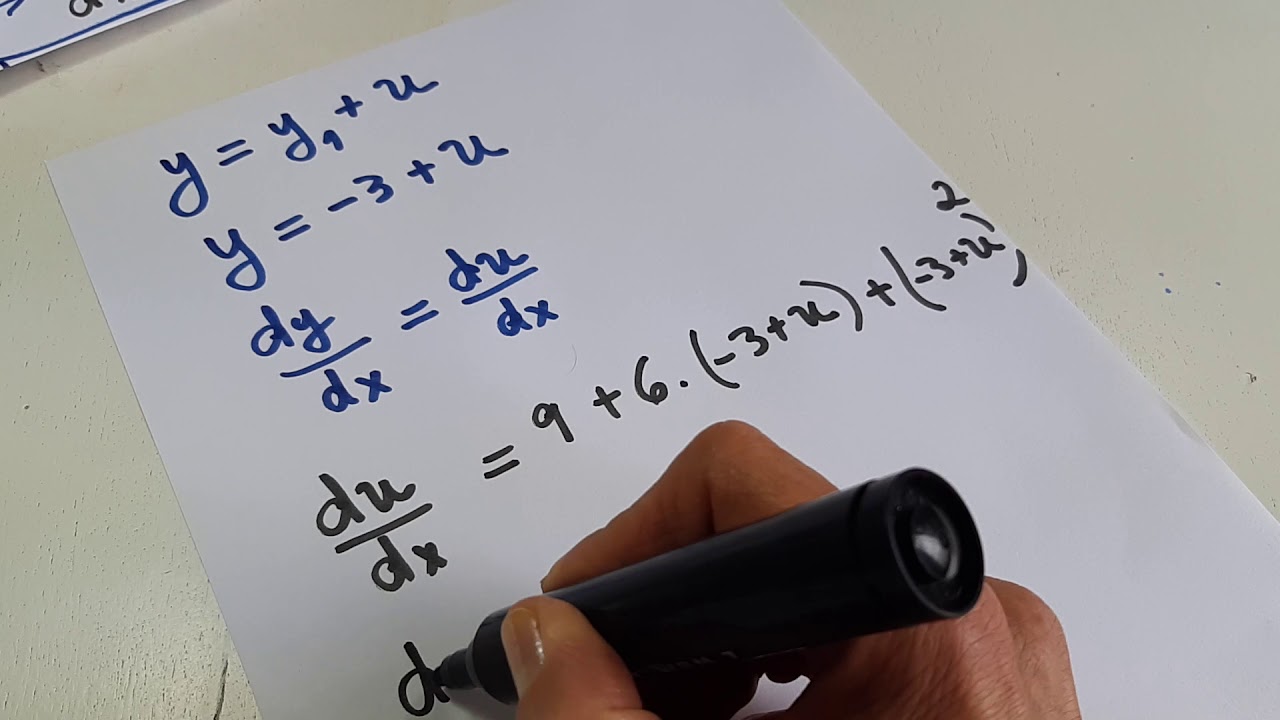 y = y₁ + u
y = -3 + u
dy/dx = du/dx
du/dx = 9 + 6.(-3+u) + (-3+u)²
d